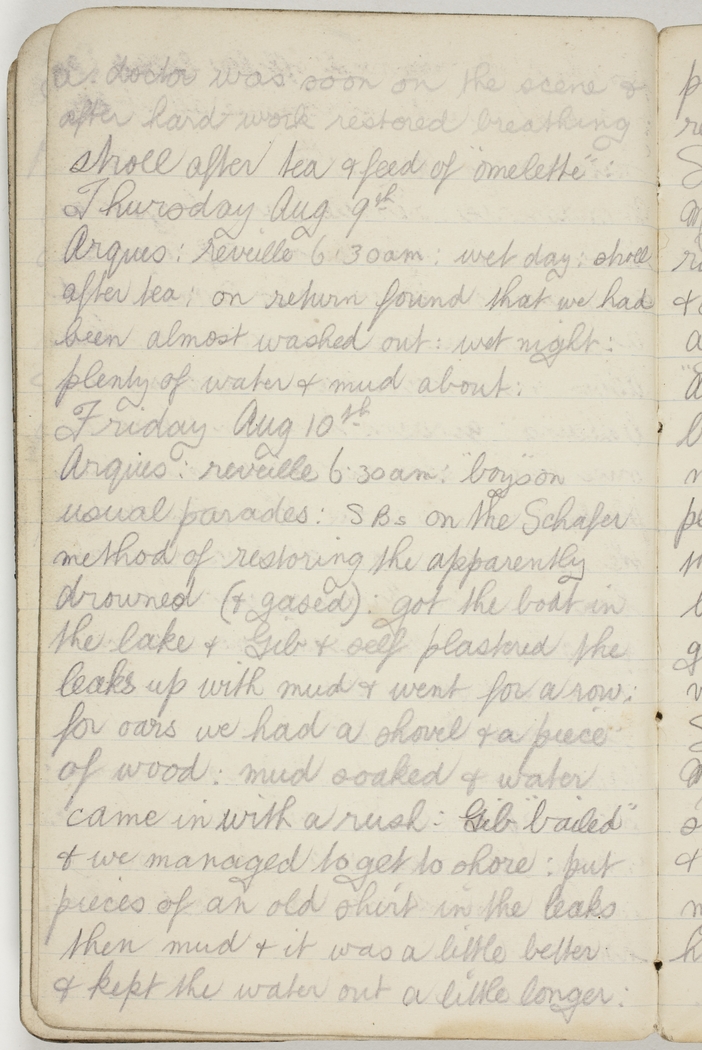 a doctor was soon on the scene &
after hard work restored breathing:
stroll after tea & feed of "omelette":
Thursday Aug 9th
Arques: reveille 6.30am: wet day: stroll
after tea: on return found that we had
been almost washed out: wet night:
plenty of water & mud about:
Friday Aug 10th
Arques: reveille 6.30am: "boys" on
usual parades: SBs on the Schafer
method of restoring the apparently
drowned (& gased): got the boat in
the lake & Gib & self plastered the
leaks up with mud & went for a row:
for oars we had a shovel & a piece
of wood: mud soaked & water
came in with a rush: Gib "bailed"
& we managed to get to shore: put
pieces of an old shirt in the leaks
then mud & it was a little better
& kept the water out a little longer: